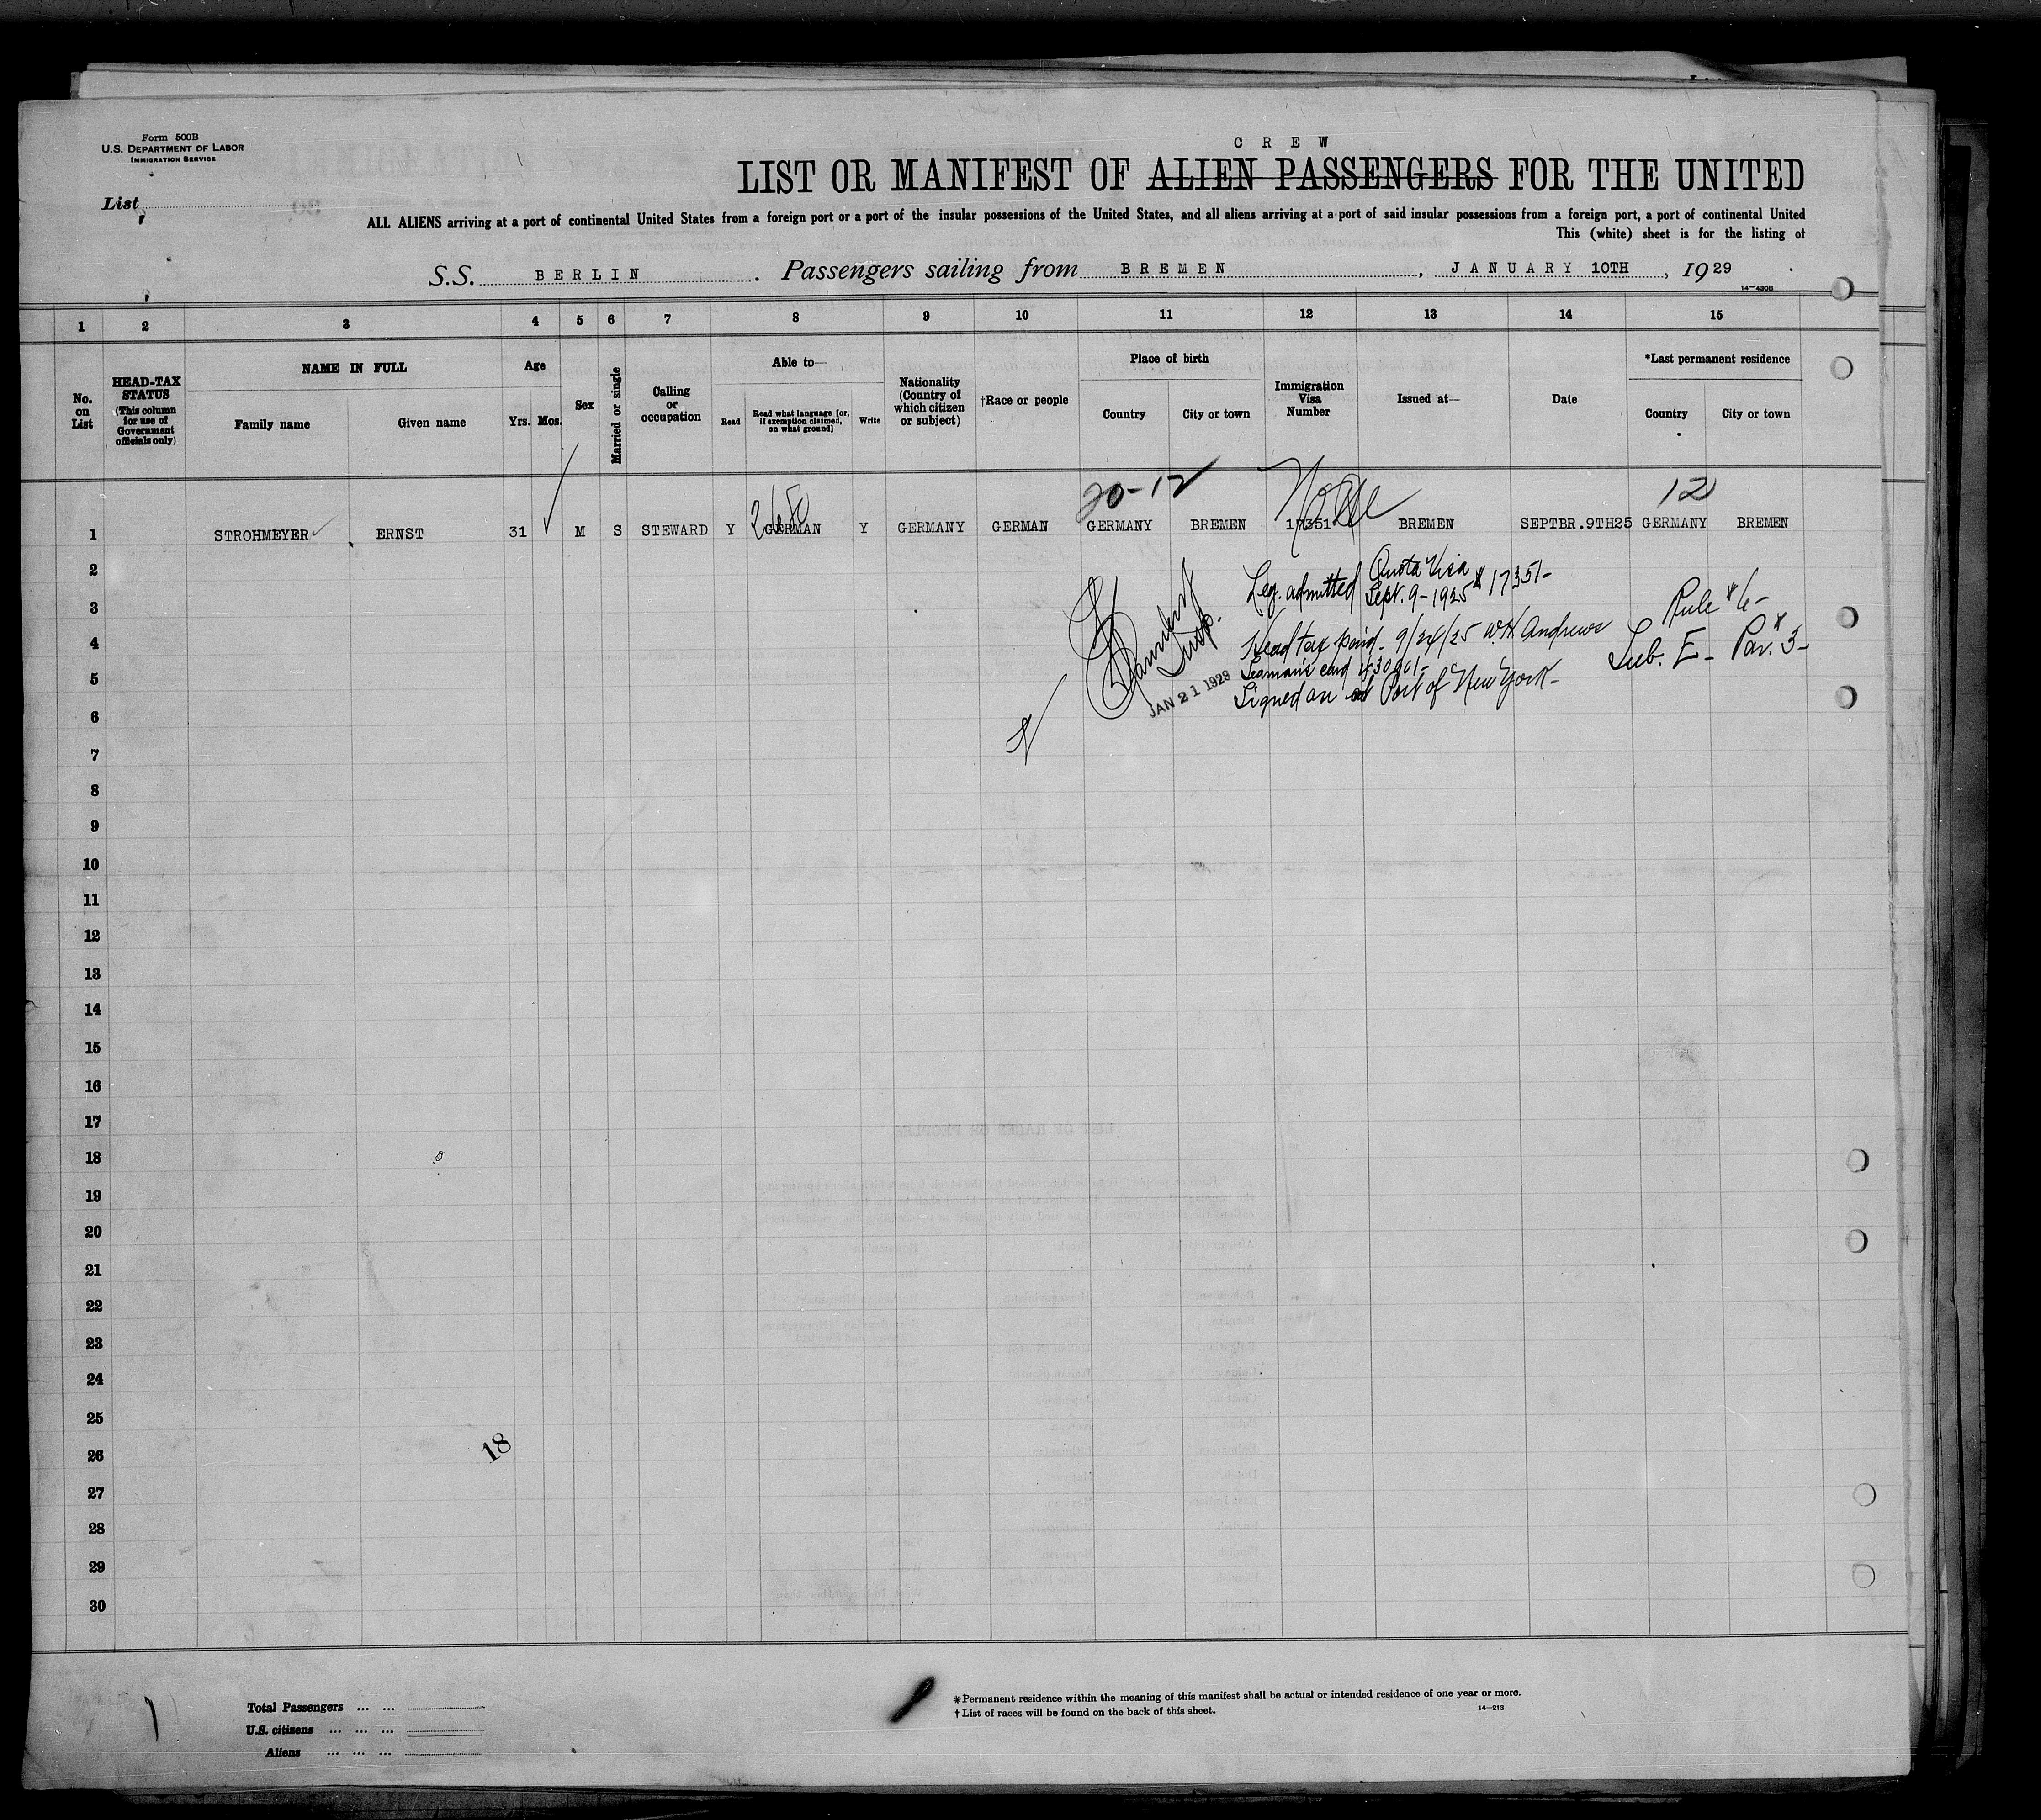 Form 500B
U.S. DEPARTMENT OF LABOR
IMMIGRATION SERVICE
List
CREW
LIST OR MANIFEST OF ALIEN PASSENGERS FOR THE UNITED
ALL ALIENS arriving at a port of continental United States from a foreign port or a port of the insular possessions of the United States, and all aliens arriving at a port of said insular possessions from a foreign port, a port of continental United
This (white) sheet is for the listing of
S.S. BERLIN. Passengers sailing from BREMEN, JANUARY 10TH, 1929
14-430B
1 2 3 4 5 6 7 8 9 10 11 12 13 14 15
No. on List
HEAD-TAX STATUS (This column for use of Government officials only)
NAME IN FULL
Family name Given name
Age
Yrs. Mos.
Sex
Married or single
Calling or occupation
Able to—
Read
Read what language [or, if exemption claimed, on what ground]
Write
Nationality (Country of which citizen or subject)
†Race or people
Place of birth
Country City or town
Immigration Visa Number
Issued at—
Date
*Last permanent residence
Country City or town
20-12 12
1 STROHMEYER ERNST 31 M S STEWARD Y GERMAN Y GERMANY GERMAN GERMANY BREMEN 17351 BREMEN SEPTBR.9TH25 GERMANY BREMEN
2
Leg. admitted Quota Visa # 17351-
Sept. 9-1925
3
Rule #6-
4
Head tax paid- 9/24/25 W.H. Andrews
Sub. E- Par. #3-
Insp.
5
Seaman's card #30901-
JAN 21 1929
Signed on at Port of New York-
6
7
8
9
10
11
12
13
14
15
16
17
18
19
20
21
22
23
24
25
26
18
27
28
29
30
Total Passengers ... ...
U.S. citizens ... ... ...
Aliens ... ... ...
*Permanent residence within the meaning of this manifest shall be actual or intended residence of one year or more.
† List of races will be found on the back of this sheet.
14-213